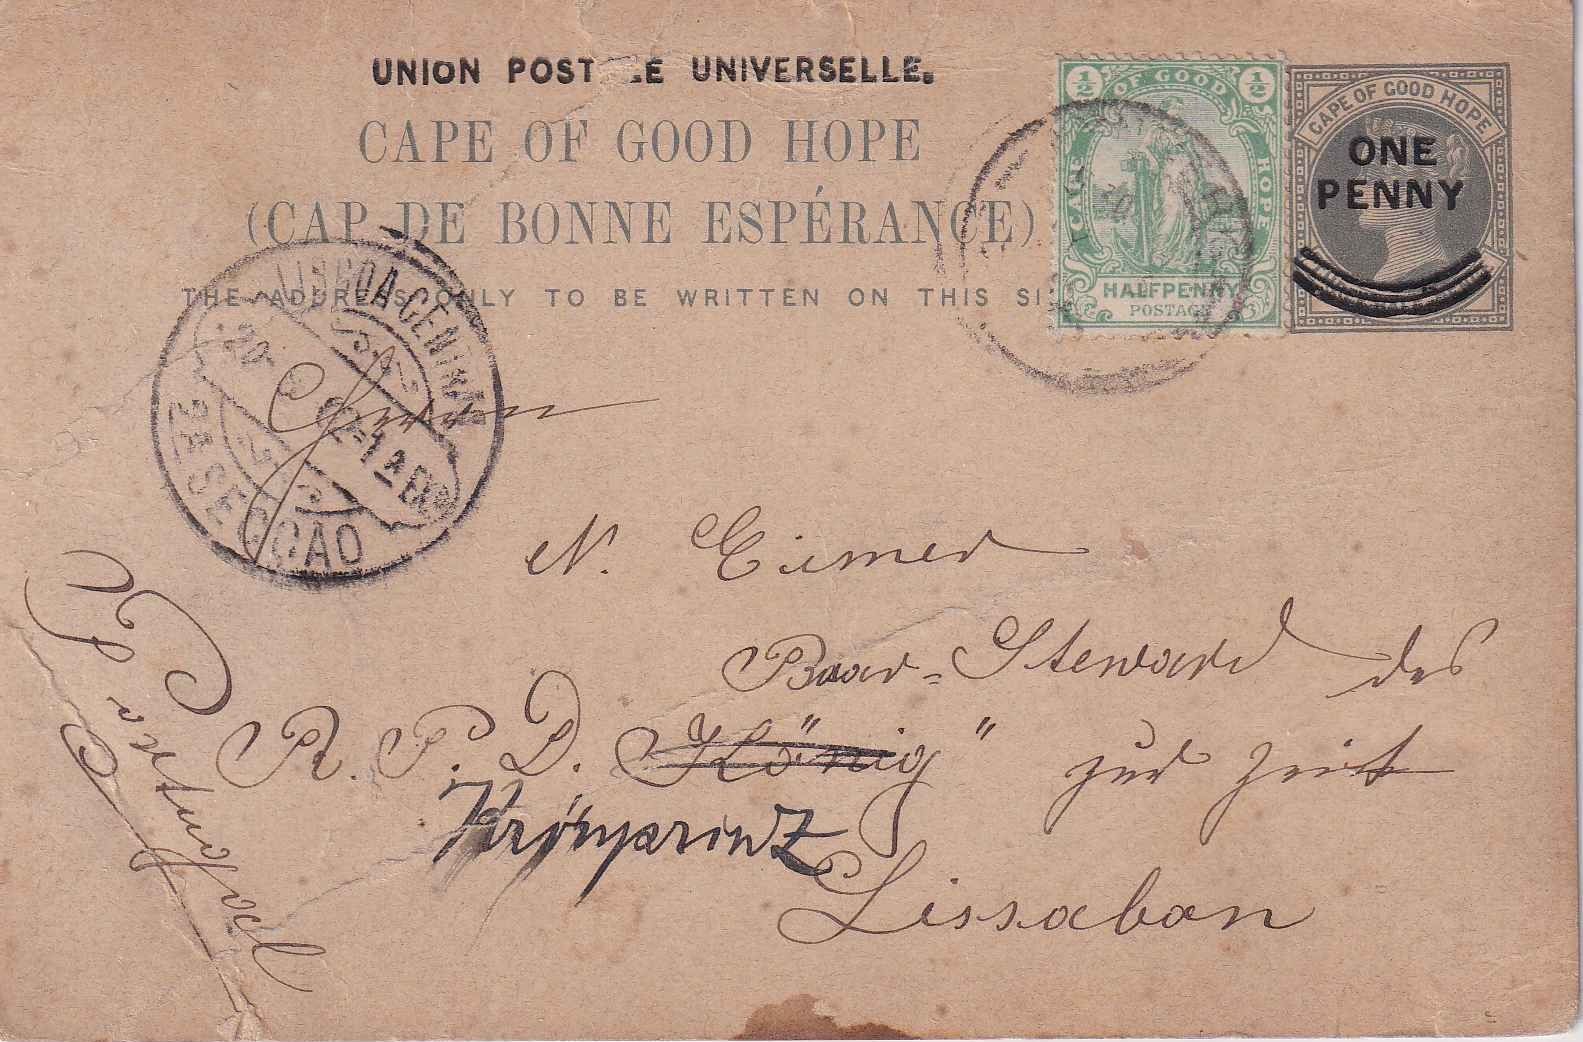 UNION POSTALE UNIVERSELLE.
CAPE OF GOOD HOPE
(CAP DE BONNE ESPÉRANCE)
THE ADDRESS ONLY TO BE WRITTEN ON THIS SI
½ OF GOOD ½
CAPE
HOPE
HALFPENNY
POSTAGE
CAPE OF GOOD HOPE
ONE
PENNY
LISBOA CENTRAL
SECÇÃO
Herrn
N. Eimer
Baar=Steward des
R. P. D. König" zur Zeit
Kronprinz
Lissabon
Portugal